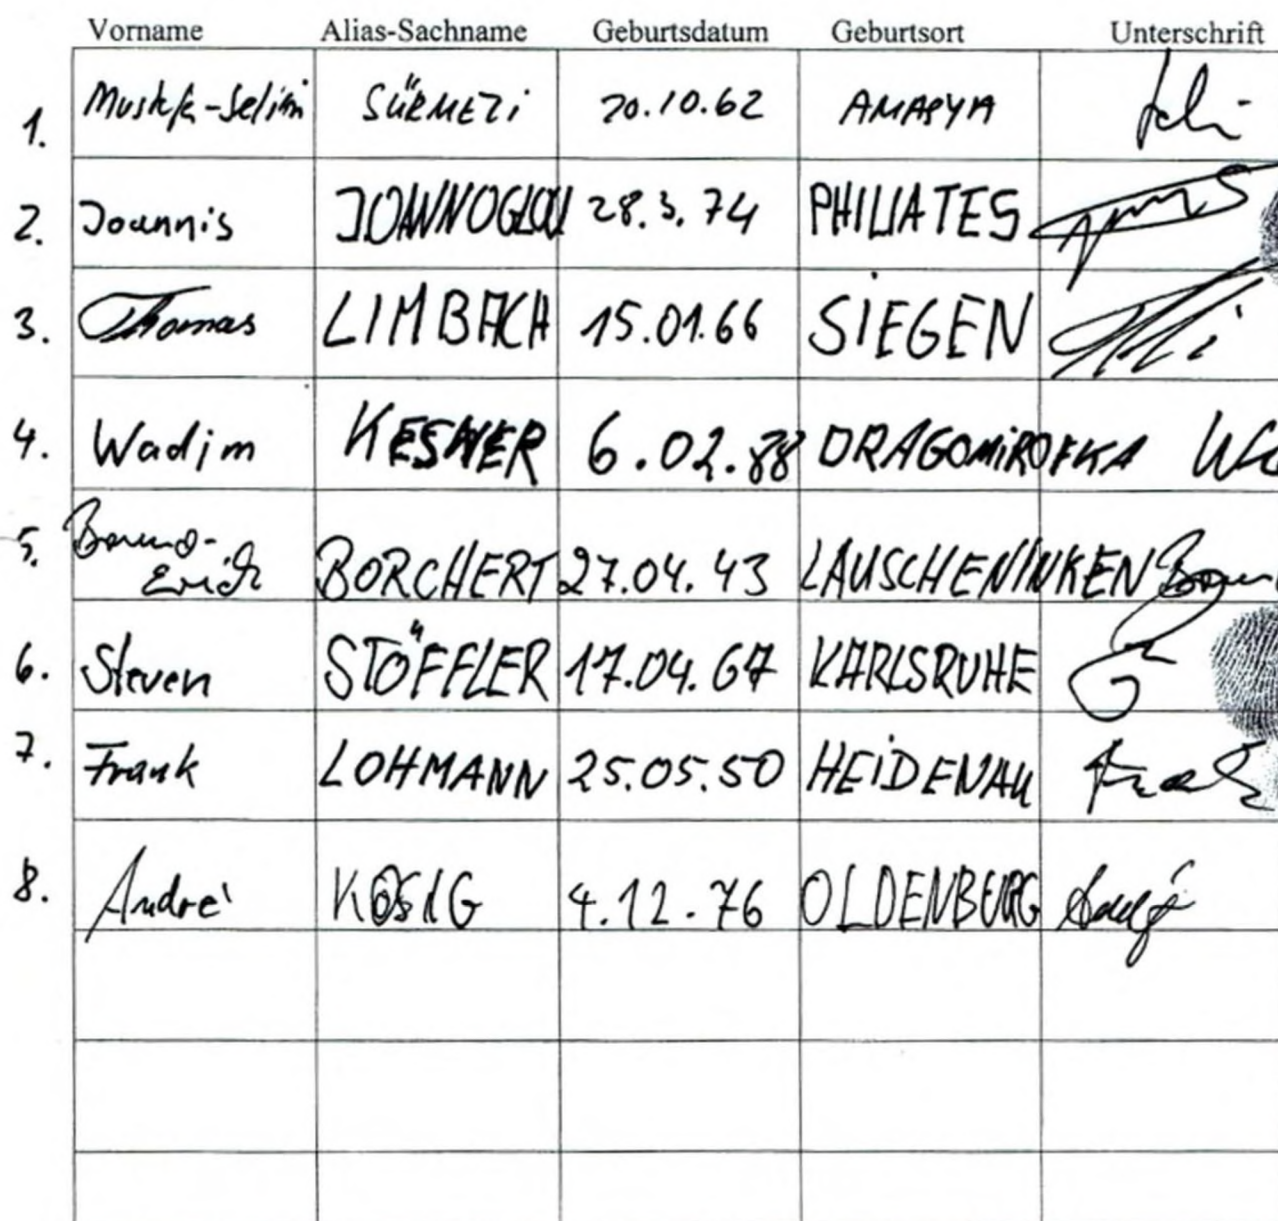 Vorname Alias-Sachname Geburtsdatum Geburtsort Unterschrift
1. SÜRMEZi 20.10.62 AMASYA
2. Joannis JOANNOGLOU 28.3.74 PHILIATES
3. Thomas LIMBACH 15.01.66 SIEGEN
4. Wadim KESNER 6.02.88 DRAGOMiROFKA
5. Erich BORCHERT 27.04.43 LAUSCHENINKEN
6. Steven STÖFFLER 17.04.67 KARLSRUHE
7. Frank LOHMANN 25.05.50 HEiDENAU
8. André 4.12.76 OLDENBURG